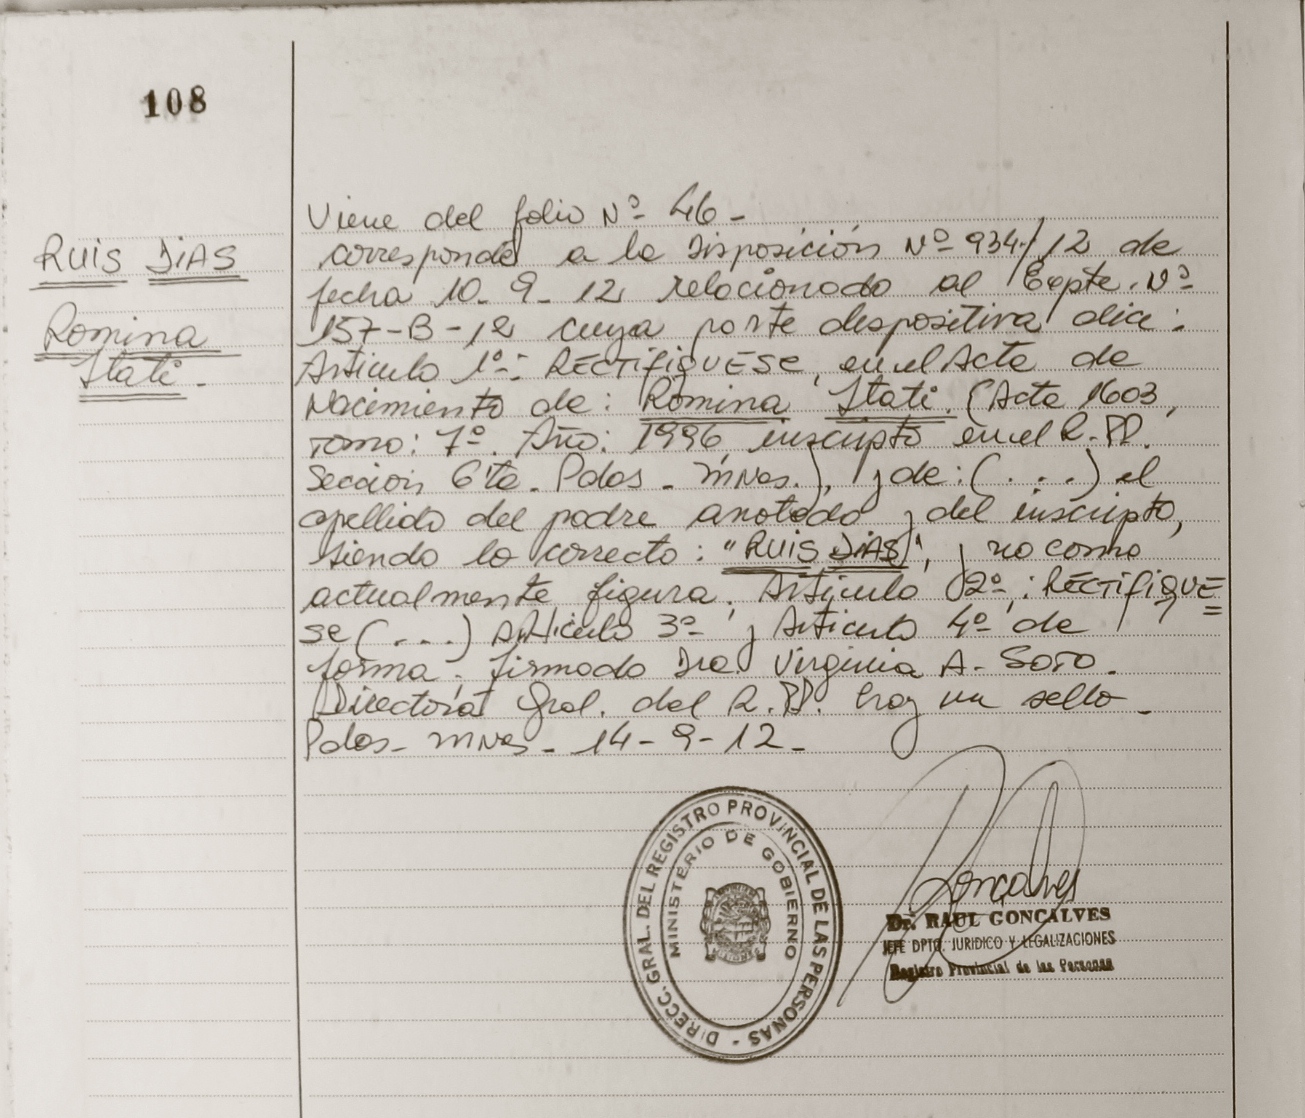 108
RUIS DIAS
Romina
Itati.-
Viene del folio Nº 46-
corresponde a la Disposición Nº 934/12 de
fecha 10-9-12 relacionado al Expte. Nº
157-B-12 cuya parte dispositiva dice:
Articulo 1º: RECTIFIQUESE, en el Acta de
Nacimiento de: Romina Itati. (Acta 1603,
Tomo: 7º. Año: 1996, inscripto en el R.PP.
Sección 6ta. Pdas. Mnes.), y de: (...) el
apellido del padre anotado y del inscripto,
siendo lo correcto: "RUIS DIAS", y no como
actualmente figura. Articulo 2º: RECTIFIQUE
SE (....) Articulo 3º y Articulo 4º de
forma. firmado Dra. Virginia A. SOTO.
Directora Gral. del R.PP. hay un sello-
Pdas- Mnes- 14-9-12-
DIRECC. GRAL. DEL REGISTRO PROVINCIAL DE LAS PERSONAS -
MINISTERIO DE GOBIERNO
Goncalves
Dr. RAUL GONCALVES
JEFE DPTO. JURIDICO Y LEGALIZACIONES
Registro Provincial de las Personas